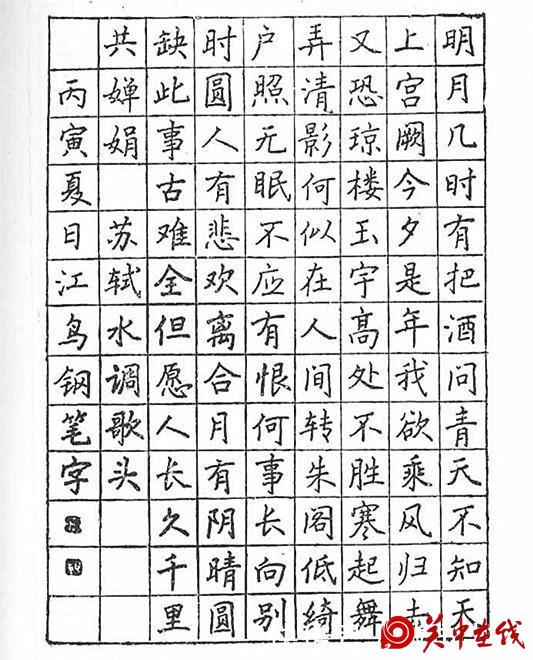 明月几时有把酒问青天不知天
上宫阙今夕是年我欲乘风归去
又恐琼楼玉宇高处不胜寒起舞
弄清影何似在人间转朱阁低绮
户照无眠不应有恨何事长向别
时圆人有悲欢离合月有阴晴圆
缺此事古难全但愿人长久千里
共婵娟 苏轼水调歌头
丙寅夏日江鸟钢笔字
关中在线